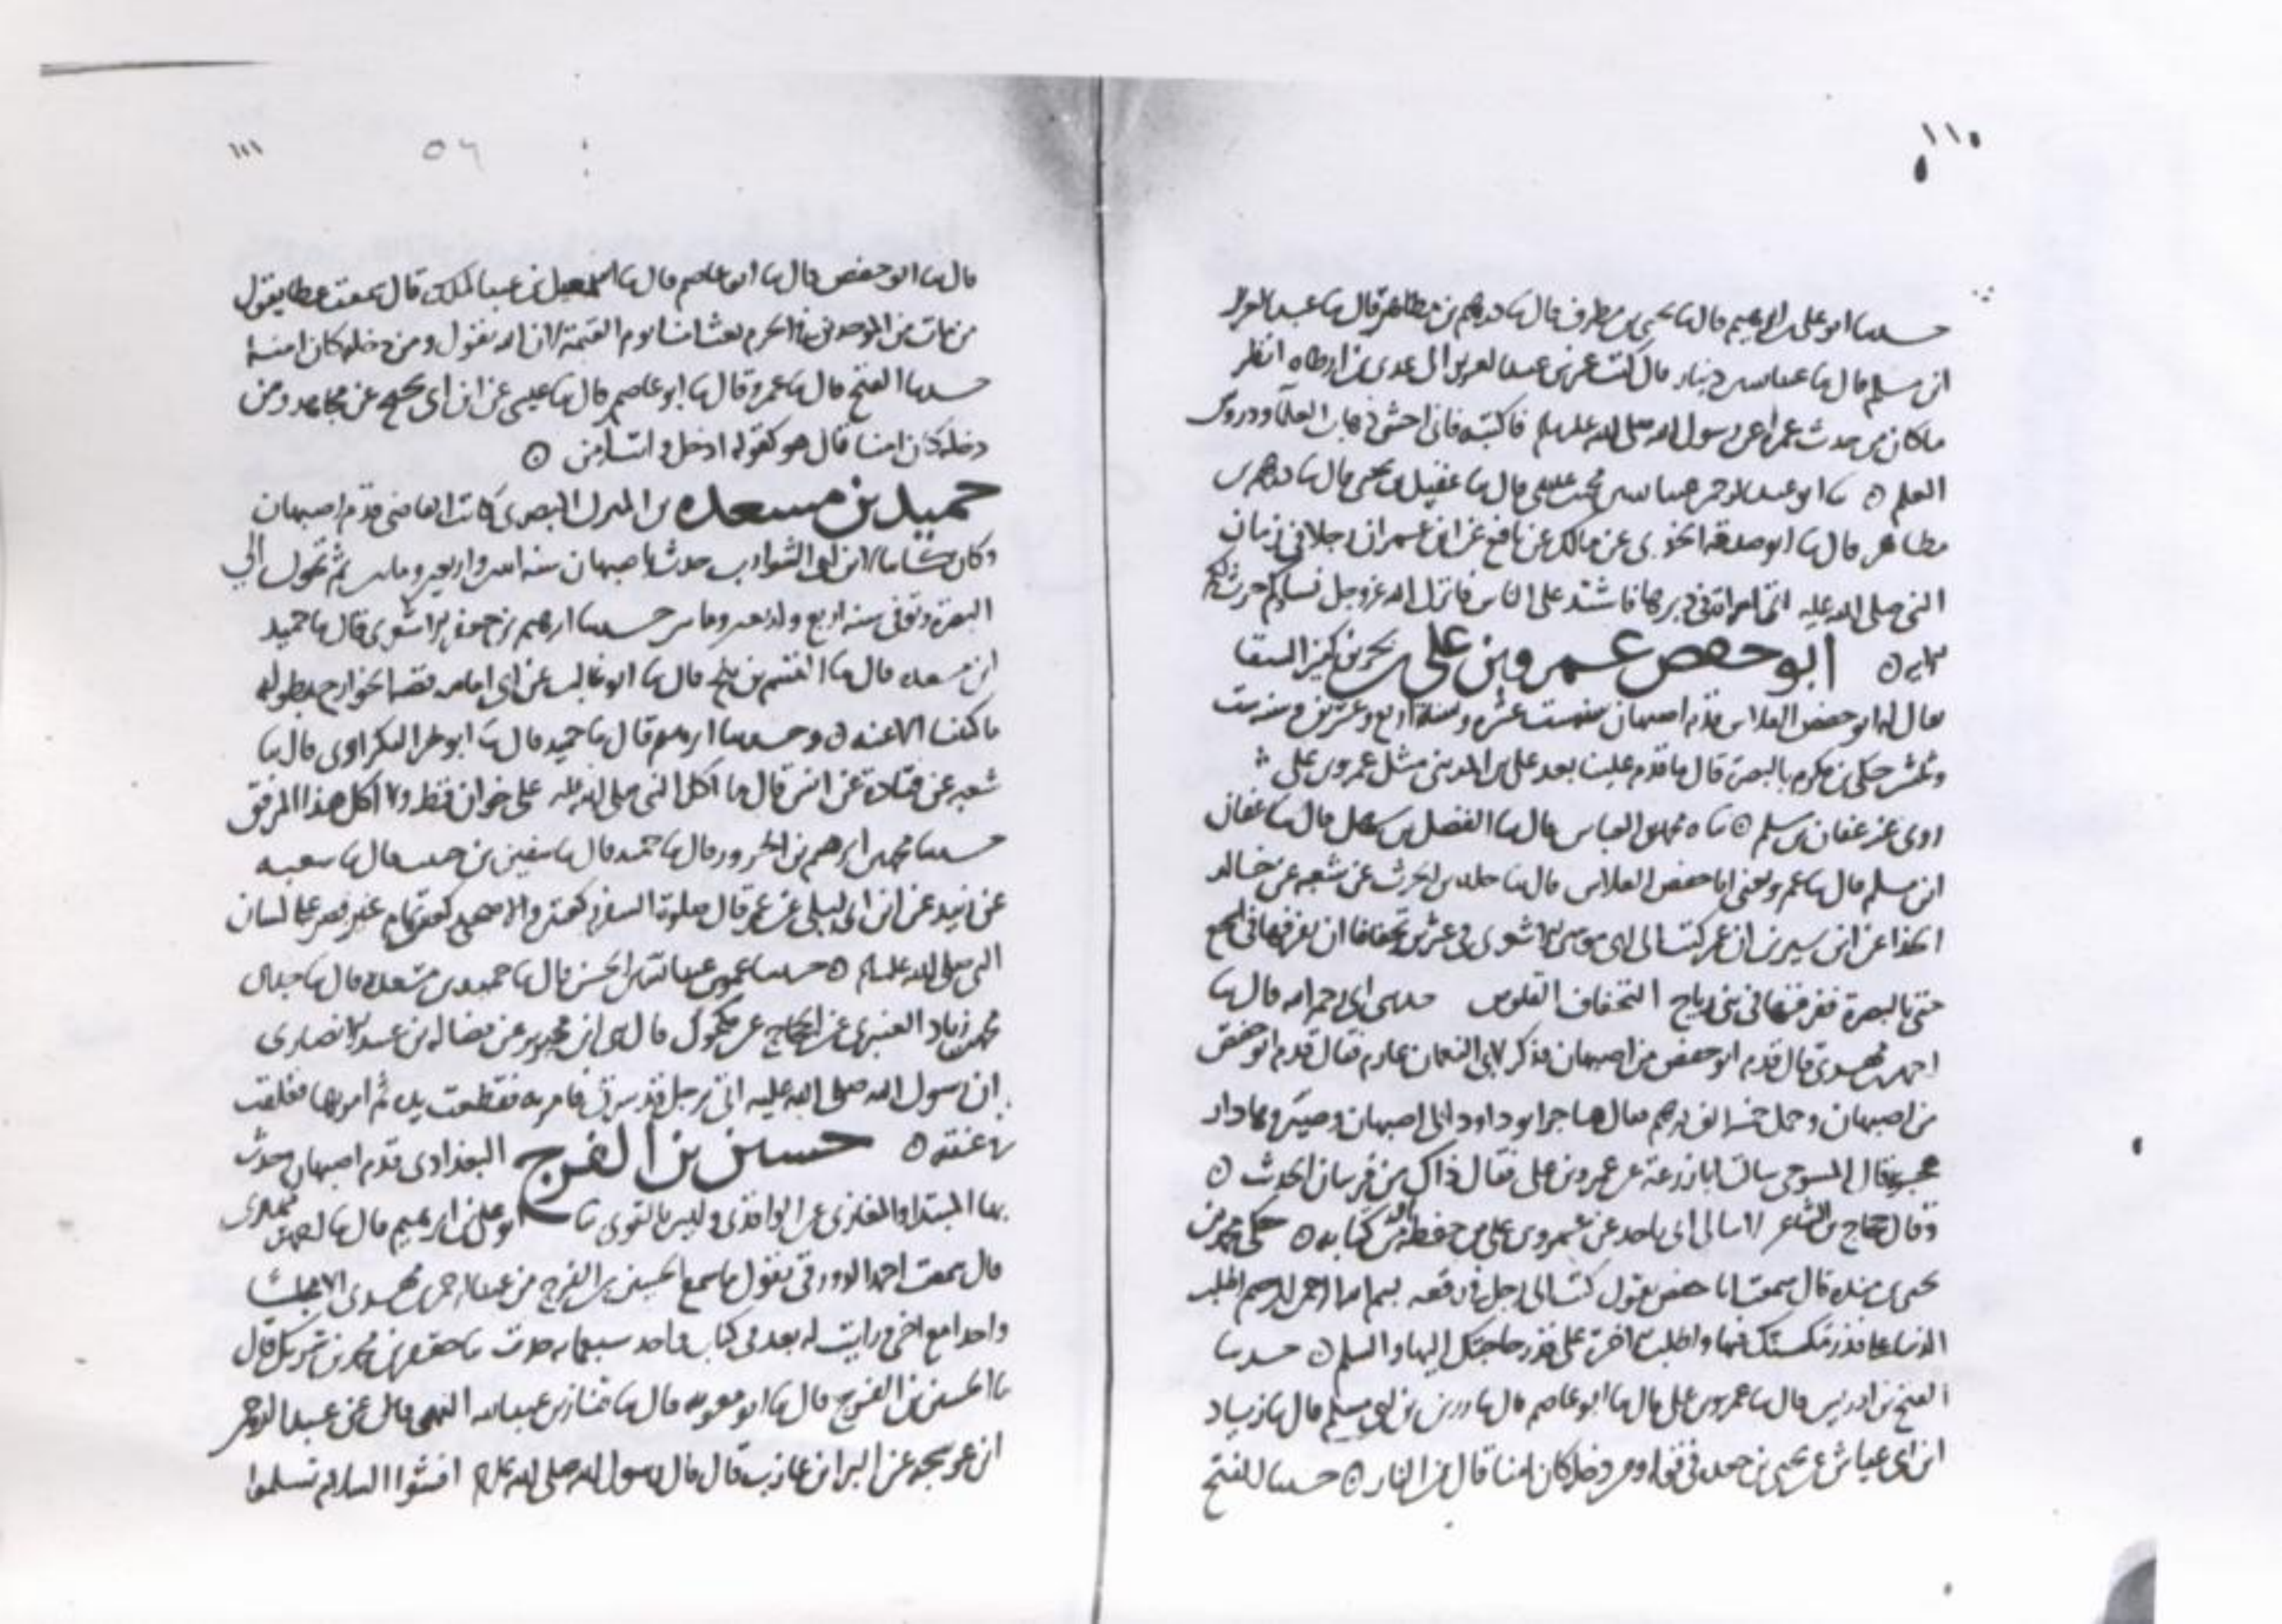 ١١٠
حدثنا ابو علي بن ابرهيم قال ثنا يحيى بن مطرف قال ثنا درهم بن مظاهر قال ثنا عبد العزيز
ابن مسلم قال ثنا عبد الله بن دينار قال كتب عمر بن عبد العزيز الى عدي بن ارطاه انظر
ما كان من حدث عمر عن رسول الله صلى الله عليه وسلم فاكتبه فاني اخشى ذهاب العلماء ودروس
العلم ٥ ثنا ابو عبد الرحمن عبد الله بن محمد بن عيسى قال ثنا عقيل بن يحيى قال ثنا درهم بن
مظاهر قال ثنا ابو صدقة عن مالك عن نافع عن ابن عمر ان رجلا في زمان
النبي صلى الله عليه اتى امراته في دبرها فاشتد على الناس فانزل الله عز وجل نساوكم حرث لكم
الايه ٥ ابو حفص عمرو بن علي بن بحر بن كنيز السقا
يقال له ابو حفص الفلاس قدم اصبهان سنه ست عشره وسنة اربع وعشرين وسنه ست
وثلثين حكى بن مكرم بالبصرة قال ما قدم علينا بعد علي بن المديني مثل عمرو بن علي
روى عنه عفان بن مسلم ٥ ثنا محمد بن العباس قال ثنا الفضل بن سهل قال ثنا عفان
ابن مسلم قال ثنا عمرو يعني ابا حفص الفلاس قال ثنا خالد بن الحرث عن شعبه عن خالد
الحذا عن ابن سيرين ان عمر كتب الى ابي موسى الاشعري في عشرين تجفافا ان يفرقها في الجمع
حتى بالبصرة ففرقها في بني رياح التجفاف القلوس حدثني ابي رحمه الله قال ثنا
احمد بن مهدي قال قدم ابو حفص من اصبهان فذكر لابي النعمان عارم فقال قدم ابو حفص
من اصبهان وحمل خمسة الف درهم فقال هاجر ابو داود الى اصبهان وصيرها دار
هجرة قال المسوحي سالت ابا زرعة عن عمرو بن علي فقال ذاك من فرسان الحديث ٥
وقال حجاج بن الشاعر لا يبالي ابي ياخذ عن عمرو بن علي من حفظه او من كتابه ٥ حكى محمد بن
يحيى بن منده قال سمعت ابا حفص يقول كتب الي رجل في رقعه بسم الله الرحمن الرحيم اطلب
الدنيا على قدر مكثك فيها واطلب الاخرة على قدر حاجتك اليها والسلم ٥ حدثنا
الفتح بن ادريس قال ثنا عمرو بن علي قال ثنا ابو عاصم قال ثنا رزين بن ابي مسلم قال ثنا زياد
ابن ابي عياش عن يحيى بن جعده في قوله ومن دخله كان امنا قال من النار ٥ حدثنا الفتح
١١١
٥٦
قال ثنا ابو حفص قال ثنا ابو عاصم قال ثنا اسمعيل بن عبد الملك قال سمعت عطا يقول
من مات من الموحدين في الحرم بعث امنا يوم القيمة لان الله يقول ومن دخله كان امنا
حدثنا الفتح قال ثنا عمرو قال ثنا ابو عاصم قال ثنا عيسى عن ابن ابي نجيح عن مجاهد ومن
دخله كان امنا قال هو كقوله ادخل وانت امن ٥
حميد بن مسعده بن المبرك البصري كاتب القاضي قدم اصبهان
وكان كاتبا لابن ابي الشوارب حدث باصبهان سنه اثنين واربعين ومايتين ثم تحول الى
البصرة وتوفي سنه اربع واربعين ومايتين حدثنا ابرهيم بن جعفر الاشعري قال ثنا حميد
ابن مسعده قال ثنا قال ثنا ابو غالب عن ابي امامه قصة الخوارج بطوله
ما كتبنا الا عنه ٥ وحدثنا ابرهيم قال ثنا حميد قال ثنا ابو بحر البكراوي قال ثنا
شعبه عن قتادة عن انس قال ما اكل النبي صلى الله عليه على خوان قط ولا اكل هذا المرقق
حدثنا محمد بن ابرهيم بن قال ثنا حميد قال ثنا سفين بن حبيب قال ثنا شعبه
عن زبيد عن ابن ابي ليلى عن عمر قال صلوة السفر ركعتين والاضحى ركعتين تمام غير قصر على لسان
النبي صلى الله عليه وسلم ٥ حدثنا عمر بن عبد الله بن الحسن قال ثنا حميد بن مسعده قال ثنا
محمد بن زياد العنبري عن الحجاج عن مكحول قال ثنا ابن محيريز عن فضاله بن عبيد الانصاري
ان رسول الله صلى الله عليه اتى برجل قد سرق فامر به فقطعت يده ثم امر بها فعلقت
في عنقه ٥ حسين بن الفرج البغدادي قدم اصبهان وحدث
بها المبتدا والمغازي عن الواقدي وليس بالقوي ثنا ابو علي بن ابرهيم قال ثنا
قال سمعت احمد الدورقي يقول ما سمع الحسين بن الفرج من عبد الرحمن بن مهدي الا مجلسا
واحدا مع اخي ورايت له بعد في كتاب واحد سبعمايه حديث ثنا جعفر بن محمد بن شريك قال
ثنا الحسين بن الفرج قال ثنا ابو معويه قال ثنا قنان بن عبد الله النهمي قال عن عبد الرحمن
ابن عوسجه عن البرا بن عازب قال قال رسول الله صلى الله عليه افشوا السلم تسلموا